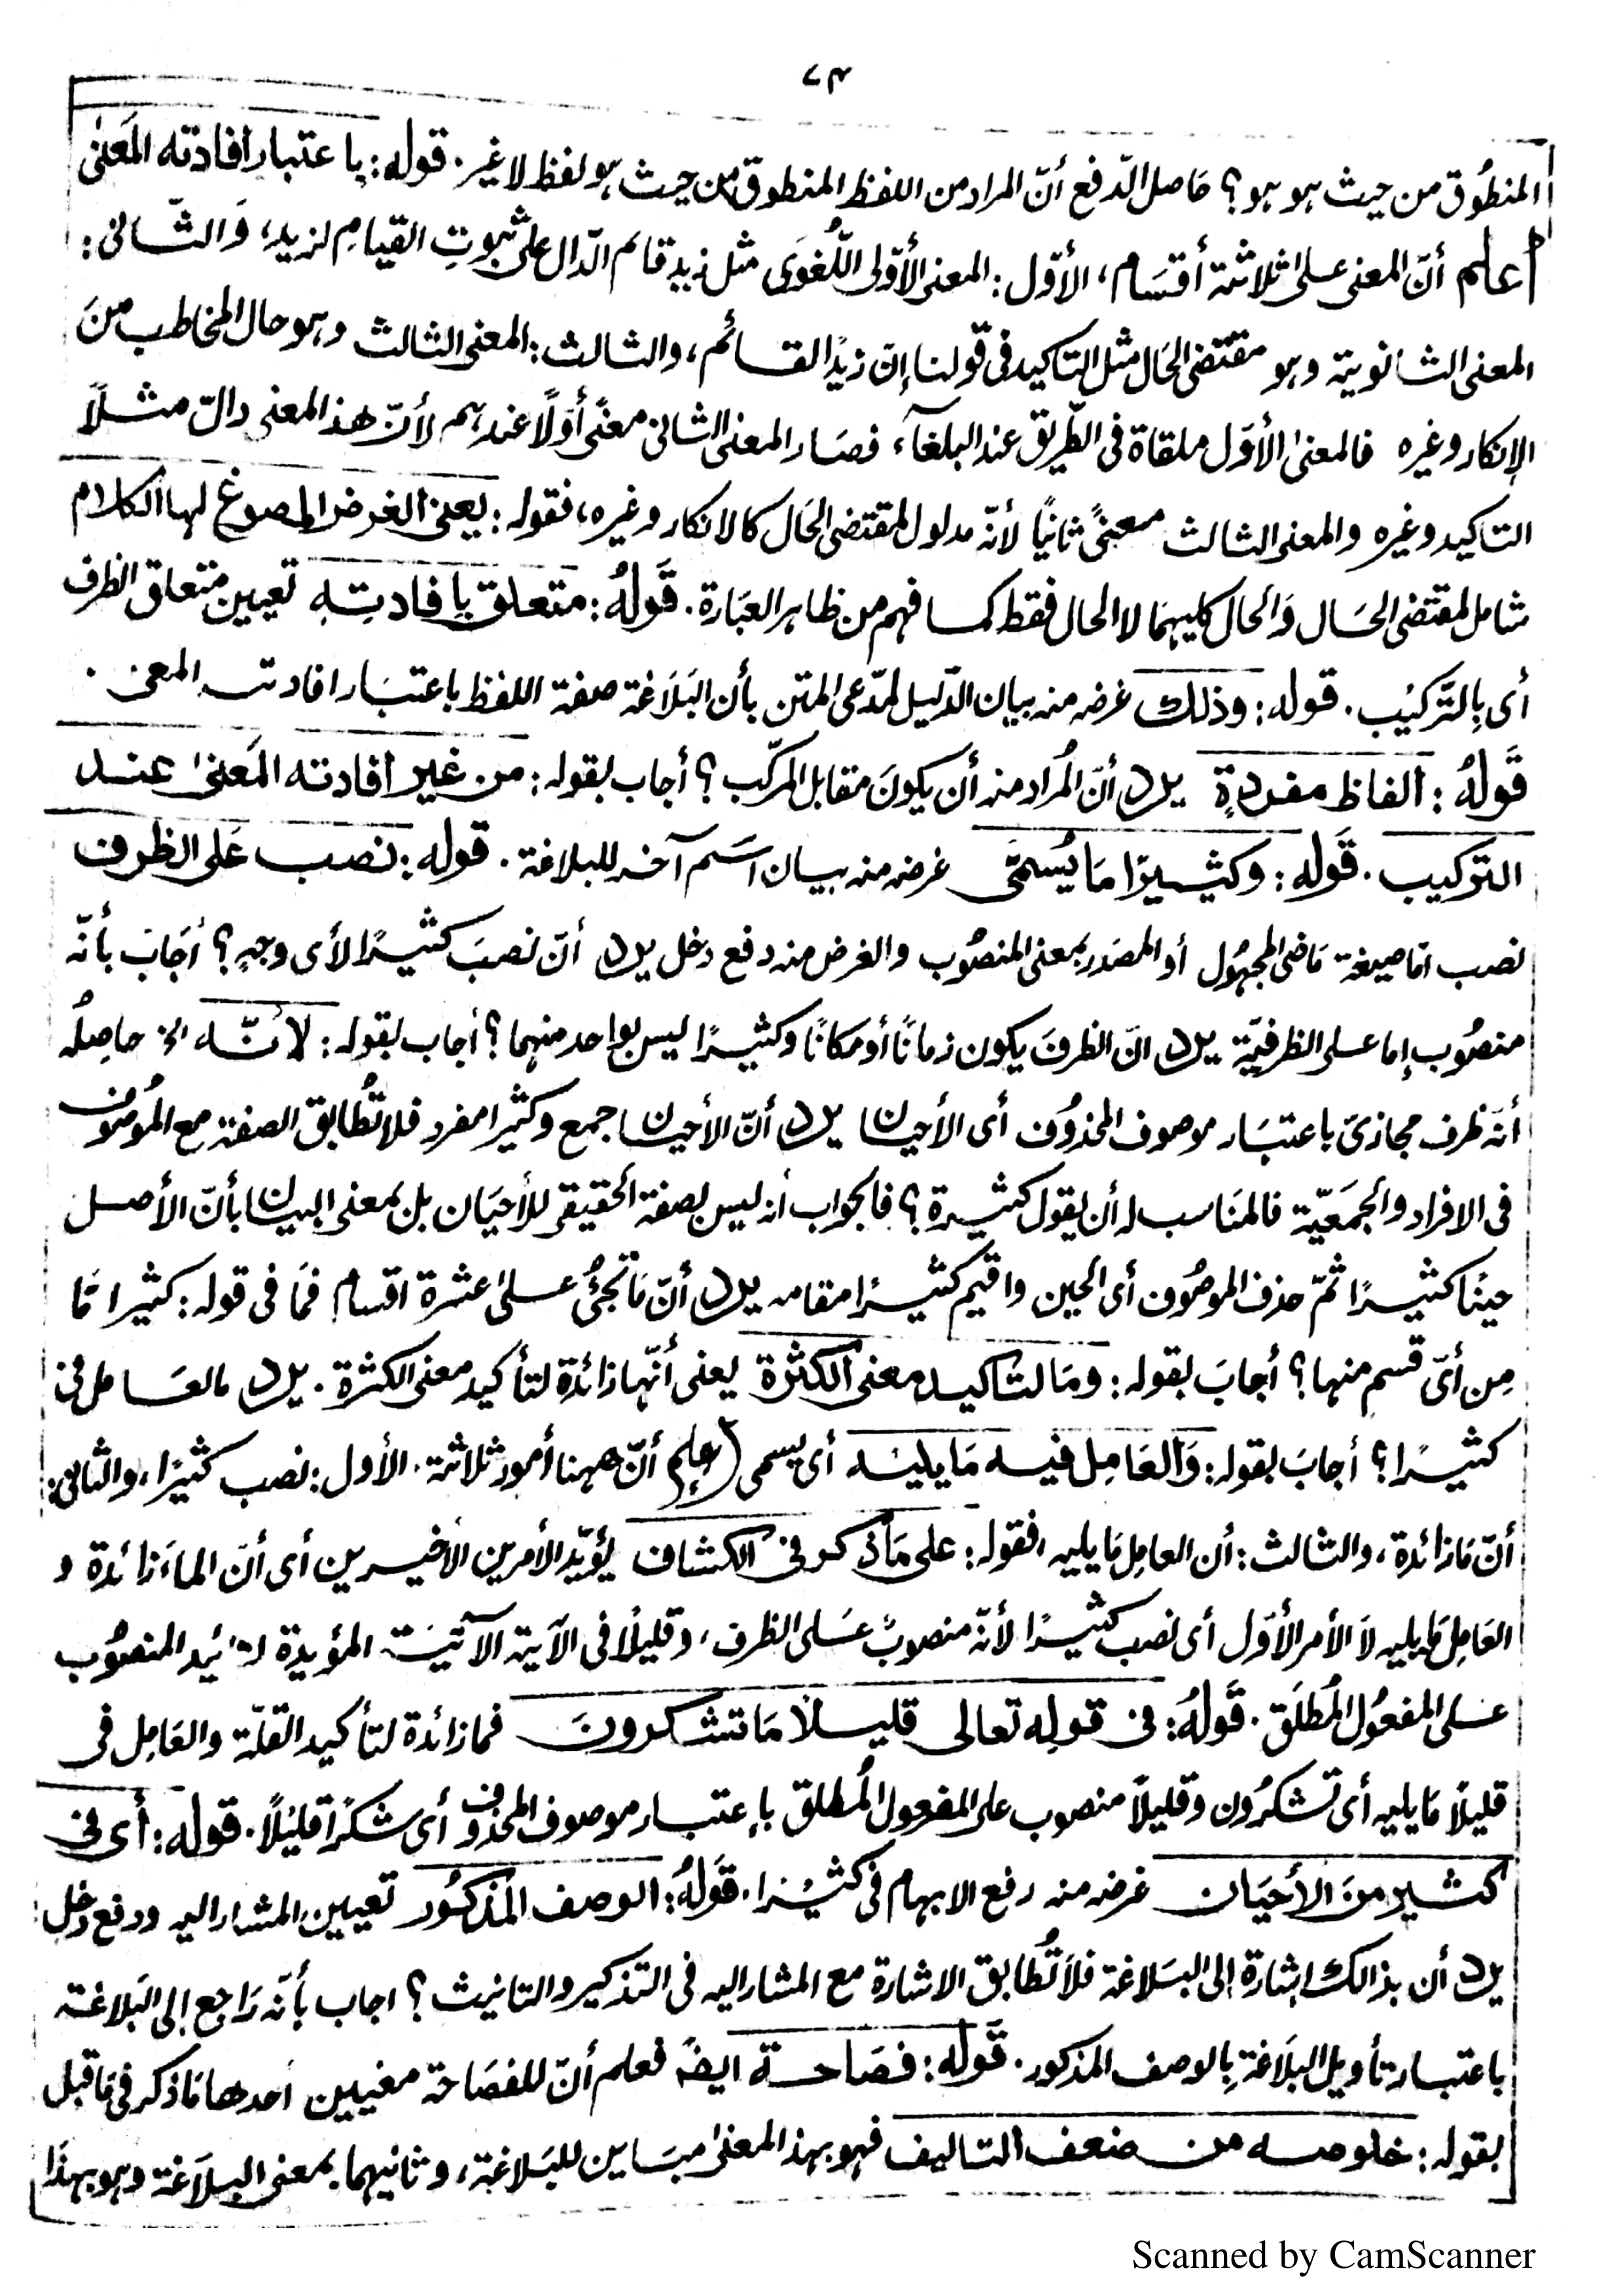 ٧٣
المنطُوق من حيث هو هو؟ حاصل الدّفع أنّ المراد من اللفظ المنطوق من حيث هو لفظ لا غير. قوله: باعتبار افادته المَعنٰى
اعلم أنّ المعنى على ثلاثة أقسَام، الأوّل: المعنى الأوّلى اللُّغوَى مثل زيد قائم الدّال على ثبوتِ القيامِ لزيد، وَالثّانى:
المعنى الثانوية وهو مقتضى الحَال مثل التاكيد فى قولنا إنّ زيدًا لقائم، والثالث: المعنى الثالث وهو حال المخاطب منَ
الإنكار وغيره فالمعنىٰ الأوّل ملقاة فى الطّريق عند البلغآء، فصَار المعنى الثانى معنًى أوّلًا عندهم لأنّ هذا المعنى دالّ مثلًا
التاكيد وغيره والمعنى الثالث معنىً ثانيًا لأنّه مدلول لمقتضى الحَال كالانكار وغيره، فقوله: يعنى الغرض المصوغ لها الكلام
شامل لمقتضى الحَال وَالحال كليهمَا لا الحال فقط كما فهم من ظاهر العبَارة. قَولهُ: متعلق بافادتِهِ تعيين متعلق الظرف
أى بِالتَّركيْب. قوله: وذلك غرضه منه بيان الدّليل لمدّعى المتن بأن البَلَاغة صفة اللفظ باعتبَار افادته المعنى.
قَولهُ: الفاظ مفردةٍ يرد أنّ المُراد منه أن يكونَ مقابل المركّب؟ أجاب بقوله: من غير افادته المَعنىٰ عند
التركيب. قَوله: وكثيرًا مَا يُسمَّى غرضه منه بيان اسَم آخر للبلاغة. قوله: نصب عَلى الظرف
نصب امّا صيغة مَاضى المجهُول أو المصَدر بمعنى المنصُوب والغرض منه دفع دخل يرد أنّ نصبَ كثيرًا لأى وجهٍ؟ أجَابَ بأنّه
منصُوب إما على الظرفيّة يرد انّ الظرفَ يكون زمانًا أو مَكانًا وكثيرًا ليس بواحد منهما؟ أجاب بقوله: لأنّه الخ حاصِلُه
أنّه ظرف مجازىّ باعتبَار موصوف المحذُوف أى الأحيان يرد أنّ الأحيان جمع وكثيرا مفرد فلا تُطابق الصفة مع المُوصُوف
فى الافراد والجمَعيّة فالمنَاسب له أن يقول كثيرة؟ فالجواب أنه ليس بصفة الحقيقى للأحيَان بل بمعنى البيان بأنّ الأصل
حينًا كثيرًا ثمّ حذف الموصُوف أى الحين واقيم كثيرًا مقامه يرد أنّ مَا تجئُ علىٰ عشرة اقسام فمَا فى قوله: كثيرا مّا
مِن أىّ قسم منها؟ أجابَ بقوله: ومَا لتاكيد معنى الكثرة يعنى أنّها زائدة لتأكيد معنى الكثرة. يرد مالعَامل فى
كثيرًا؟ أجابَ بقوله: وَالعَامِل فيه مَا يليه أى يسمى (اعلم) أنّ ههنا أمور ثلاثة. الأول: نصب كثيرًا، والثانى:
أنّ مَا زائدة، والثالث: أن العامِل مَا يليه، فقوله: على مَا ذكر فى الكشاف يؤيّد الأمرين الأخيرين أى أنّ الما زائدة و
العَامِل مَا يليه لاَ الأمر الأوّل أى نصب كثيرًا لأنّه منصوبٌ عَلى الظرف، وقليلًا فى الآية الآتيَة المؤيدة لتائيد المنصُوب
على المفعُول المُطلَق. قَولهُ: فى قولِه تعالى قليلًا مَا تشكرونَ فما زائدة لتأكيد القلّة والعَامِل فى
قليلًا مَا يليه أى تشكرُون وقليلاً منصوب على المفعول المُطلق بإعتبار موصوف المحذوف أى شكرًا قليْلاً. قوله: أى فى
كثير منَ الأحيَان غرضه منه رفع الابهام فى كثيْرًا. قَولهُ: الوصف المَذكُور تعيين المشار اليه ودفع دخل:
يرد أن بذالك اشارة إلى البَلاغة فلاَ تُطَابق الاشارة مع المشار اليه فى التذكير والتانيث؟ اجاب بأنّه رَاجع إلى البَلاغة
باعتبار تأويل البلَاغة بِالوصف المذكور. قَوله: فصَاحة ايضً فعلم أنّ للفصَاحة معنيين أحدها مَا ذكر فى مَا قبل
بقوله: خلوصه من ضعف التاليف فهو بهذا المعنىٰ مبَاين للبَلاغة، وثانيهما بمعنى البلاَغة وهو بهذَا
Scanned by CamScanner